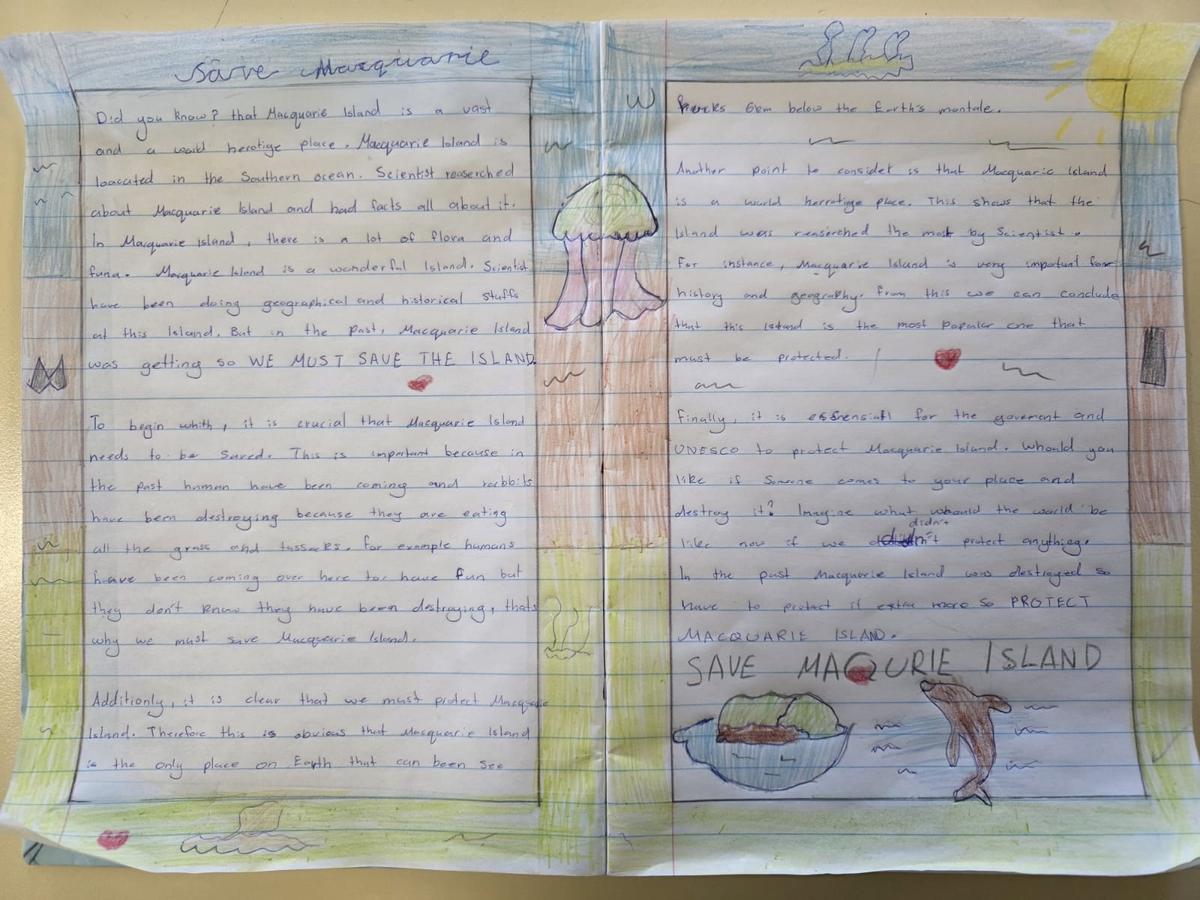 Save Macquarie
Did you know? that Macquarie Island is a vast
and a world herotige place. Macquarie Island is
loacated in the Southern ocean. Scientist reaserched
about Macquarie Island and had facts all about it.
In Macquarie Island, there is a lot of flora and
funa. Macquarie Island is a wonderful Island. Scientist
have been doing geographical and historical stuffs
at this Island. But in the past, Macquarie Island
was getting so WE MUST SAVE THE ISLAND.
To begin whith, it is crucial that Macquarie Island
needs to be saved. This is important because in
the past human have been coming and rabbits
have been destroying because they are eating
all the grass and tussacks. for example humans
have been coming over here to have fun but
they don't know they have been destroying, thats
why we must save Macquearie Island.
Additionly, it is clear that we must protect Macquarie
Island. Therefore this is obvious that Macquarie Island
is the only place on Earth that can been see
Rocks 6km below the Earth's mantale.
Another point to consider is that Macquarie Island
is a world herrotige place. This shows that the
Island was reaserched the most by Scientist.
For instance, Macquarie Island is very important for
history and geography. From this we can conclude
that this Island is the most popular one that
must be protected.
Finally, it is essensiall for the goverment and
UNESCO to protect Macquarie Island. Whould you
like if Someone comes to your place and
destroy it? Imagine what whould the world be
like now if we didn't protect anything.
In the past Macquarie Island was destroyed so
have to protect it extra more so PROTECT
MACQUARIE ISLAND.
SAVE MAQURIE ISLAND